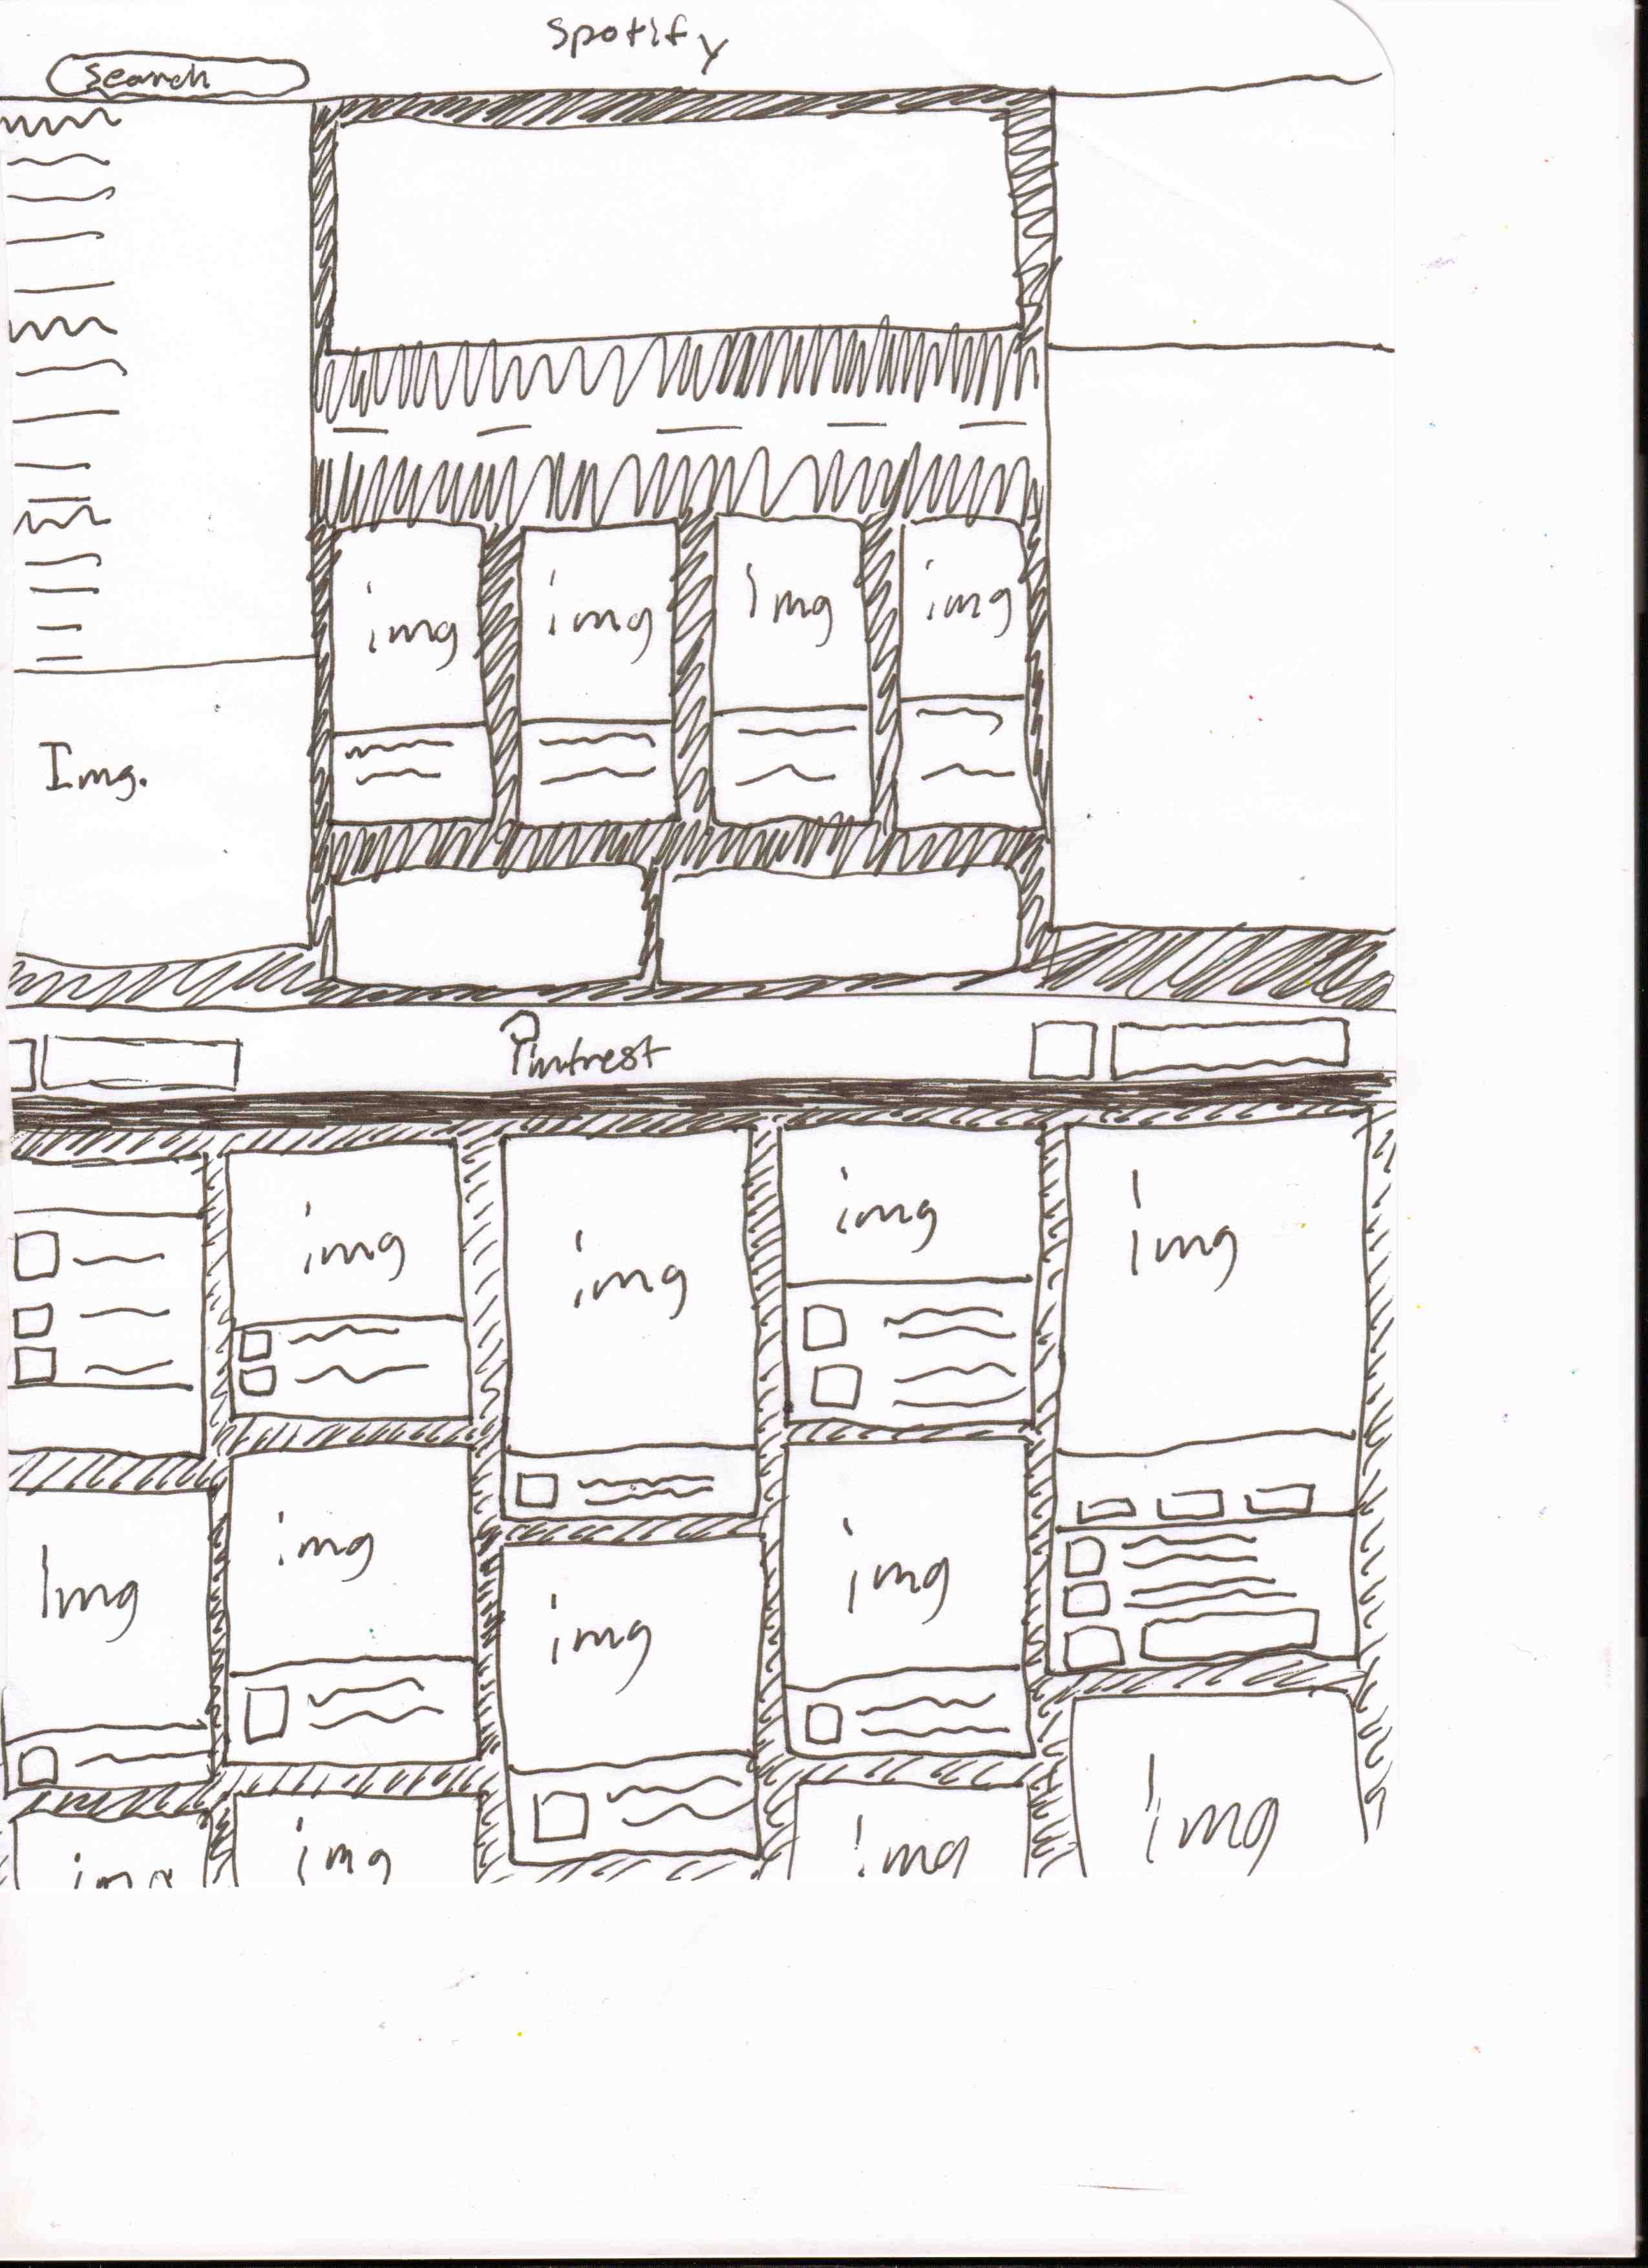 Spotify
Search
img img Img img
Img.
Pintrest
img img img Img
Img img img img
img img img Img